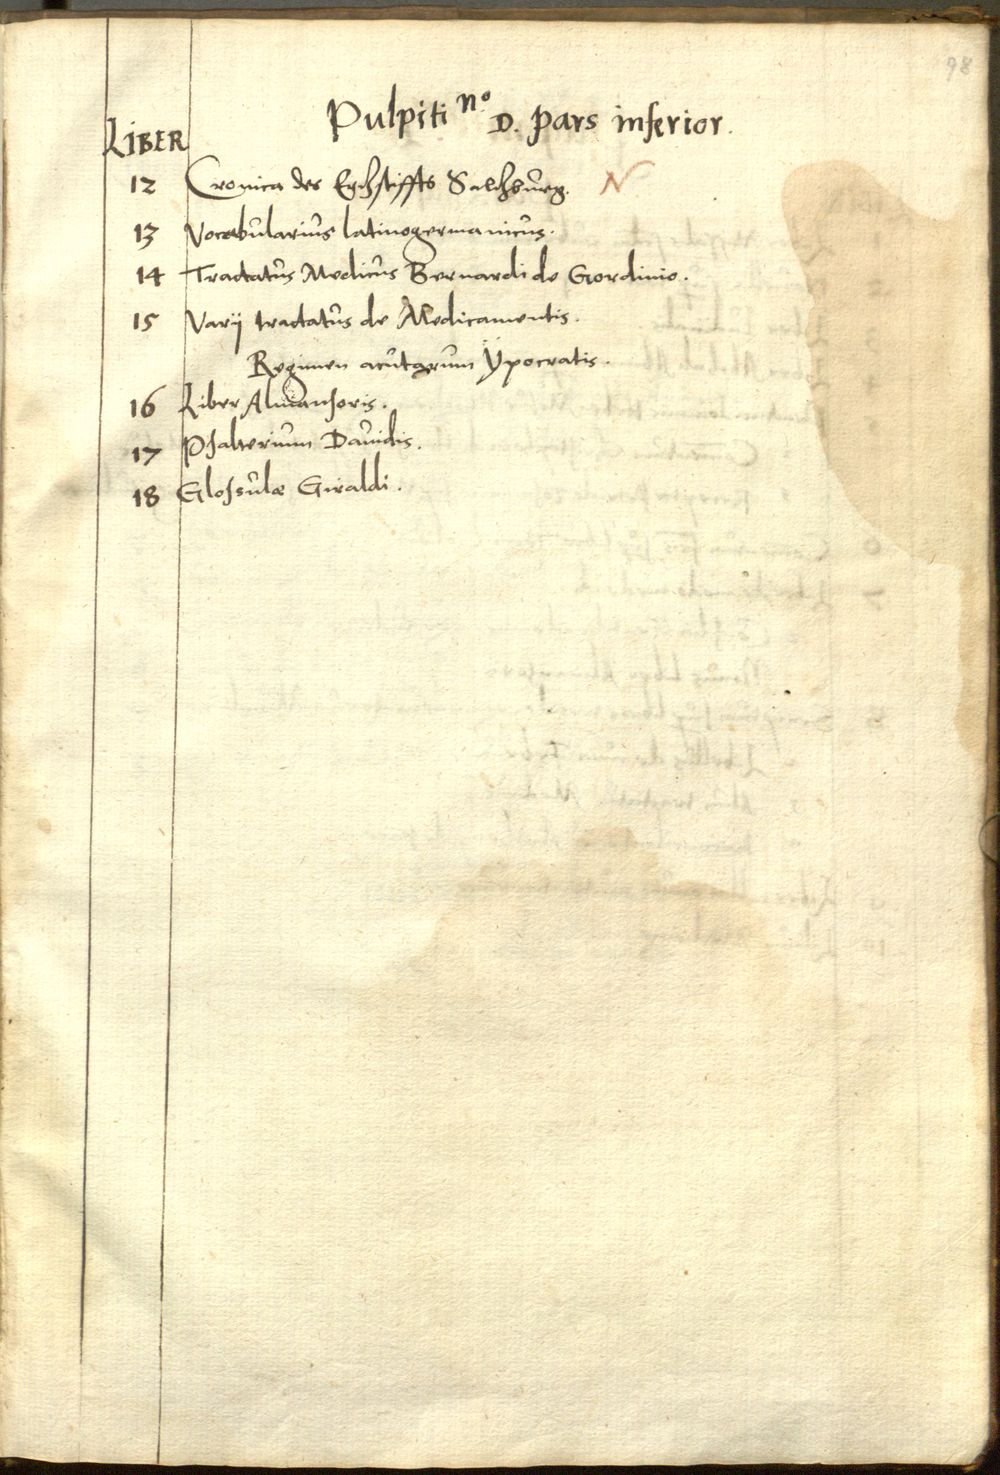 98
Pulpiti nº D. pars inferior.
LIBER
12 Cronica des Ertzstiffts Saltzburg. N
13 Vocabularius latinogermanicus.
14 Tractatus Medicus Bernardi de Gordinio.
15 Varij tractatus de Medicamentis.
Regimen acutarum Ypocratis.
16 Liber Almansoris.
17 Psalterium Dauidis.
18 Glossulæ Giraldi.